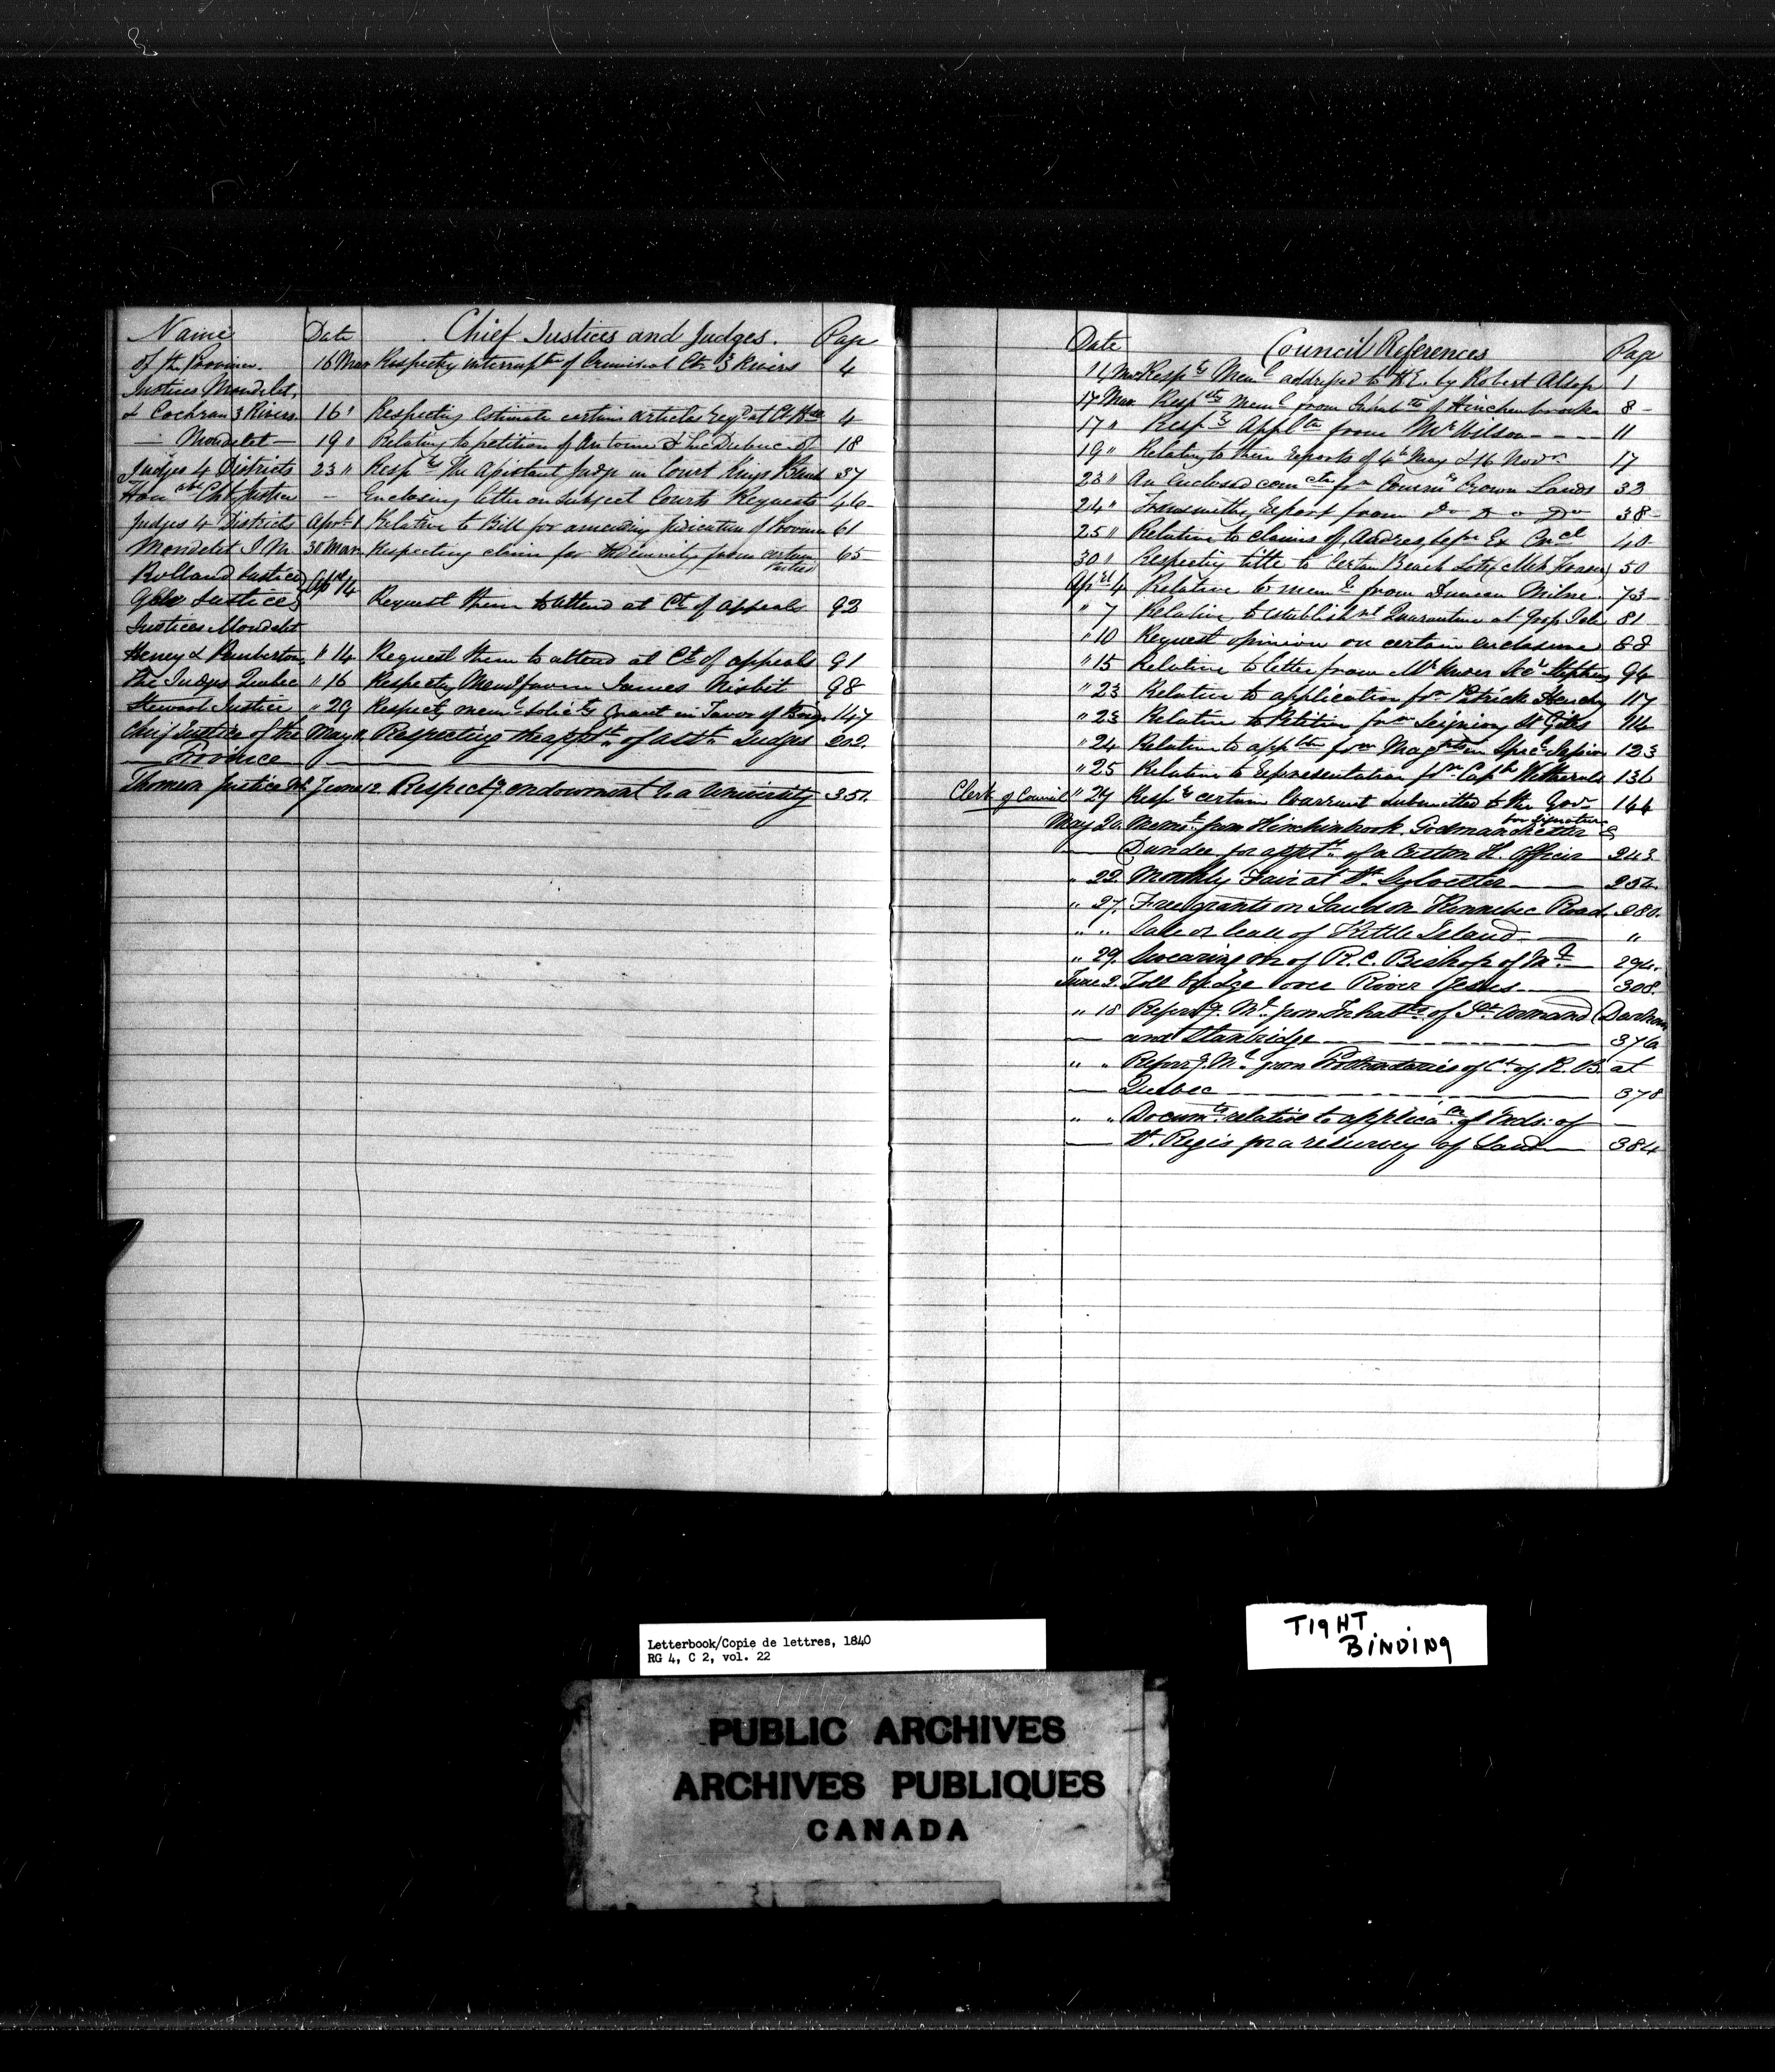 Name Date Chief Justices and Judges. Page
of the Province. 16 Mar Respectg interruptn of Criminal Ct 3 Rivers 4
Justices Mondelet,
& Cochran 3 Rivers. 16 " Respecting Estimate certain articles reqd at Ct Hse 4
— Mondelet — 19 " Relating to petition of Antoine & Luc Dubuc 18
Judges 4 Districts 23 " Respg The Assistant Judge in Court Kings Bench 37
Honable Chf Justice – Enclosing letter on subject Courts Requests 46
Judges 4 Districts April 1 Relative to Bill for amending Judicature of Province 61
Mondelet J M. 30 Mar Respecting claim for Indemnity from certain parties 65
Rolland Justice Apl 14
Gale Justice Request them to attend at Ct of appeals 92
Justices Mondelet
Heney & Pemberton " 14 Request them to attend at Ct of appeals 91
The Judges Quebec " 16 Respectg Meml from James Nisbit 98
Stewart Justice " 29 Respectg meml solicitg Grant in Favor of 147
Chief Justice of the May 11 Respecting the apptt of asstt Judges 202.
— Province —
Justice June 12. Respectg. endowment to a University 351.
Date Council References Page
14 Mar Respg Meml addressed to H.E. by Robert Alsop 1
17 Mar Respg Meml from Inhabts of Hinchenbrooke 8 –
17 " Respg Appltn from Mr Wilson - - - - 11
19 " Relating to their reports of 4th May & 16 Novr 17
23 " An enclosed fm Commr Crown Lands 33
24 " Transmitting Report from Do Do Do 38 –
25 " Relative to claims of Ex Cncl 40
30 " Respecting title to Certain Beach Lots 50
Apl 4 Relative to meml from Duncan Milne. 73
" 7 Relative to establisht Quarantine at Isle 81
" 10 Request opinion on certain enclosures 88
" 15 Relative to letter from Mr 96
" 23 Relative to application fm Patrick 117
" 23 Relative to Petition from Seigniory St Giles 114
" 24 Relative to appltn from Magtes in Special Session 123
" 25 Relative to Representation fm Captn Wetherall 136
Clerk of Council " 29 Respg certain Warrant submitted to the Govr for signature 144
May 20. Meml. from Hinchinbrook Godmanchester &
— Dundee for apptt. of a Custom H. Officer 243
" 22. Monthly Fair at St. Sylvester 254.
" 27. Free grants on Land on Kennebec Road. 280.
" " Sale or lease of Kettle Island — "
" 29. Swearing in of R. C. Bishop of Ml — 294.
June 2. Toll bridge over River Jesus — 308.
" 18 Referrg. Ml. from Inhabts. of St. Armand Dunham
— and Stanbridge — 376
" " Referrg. Ml. from Prothonotaries of Ct. of K. B. at
— Quebec — 378
" " Documts. relative to applican. of Inds. of —
— St. Regis for a resurvey of Land — 384
Letterbook/Copie de lettres, 1840
RG 4, C 2, vol. 22
TIGHT
BINDING
PUBLIC ARCHIVES
ARCHIVES PUBLIQUES
CANADA